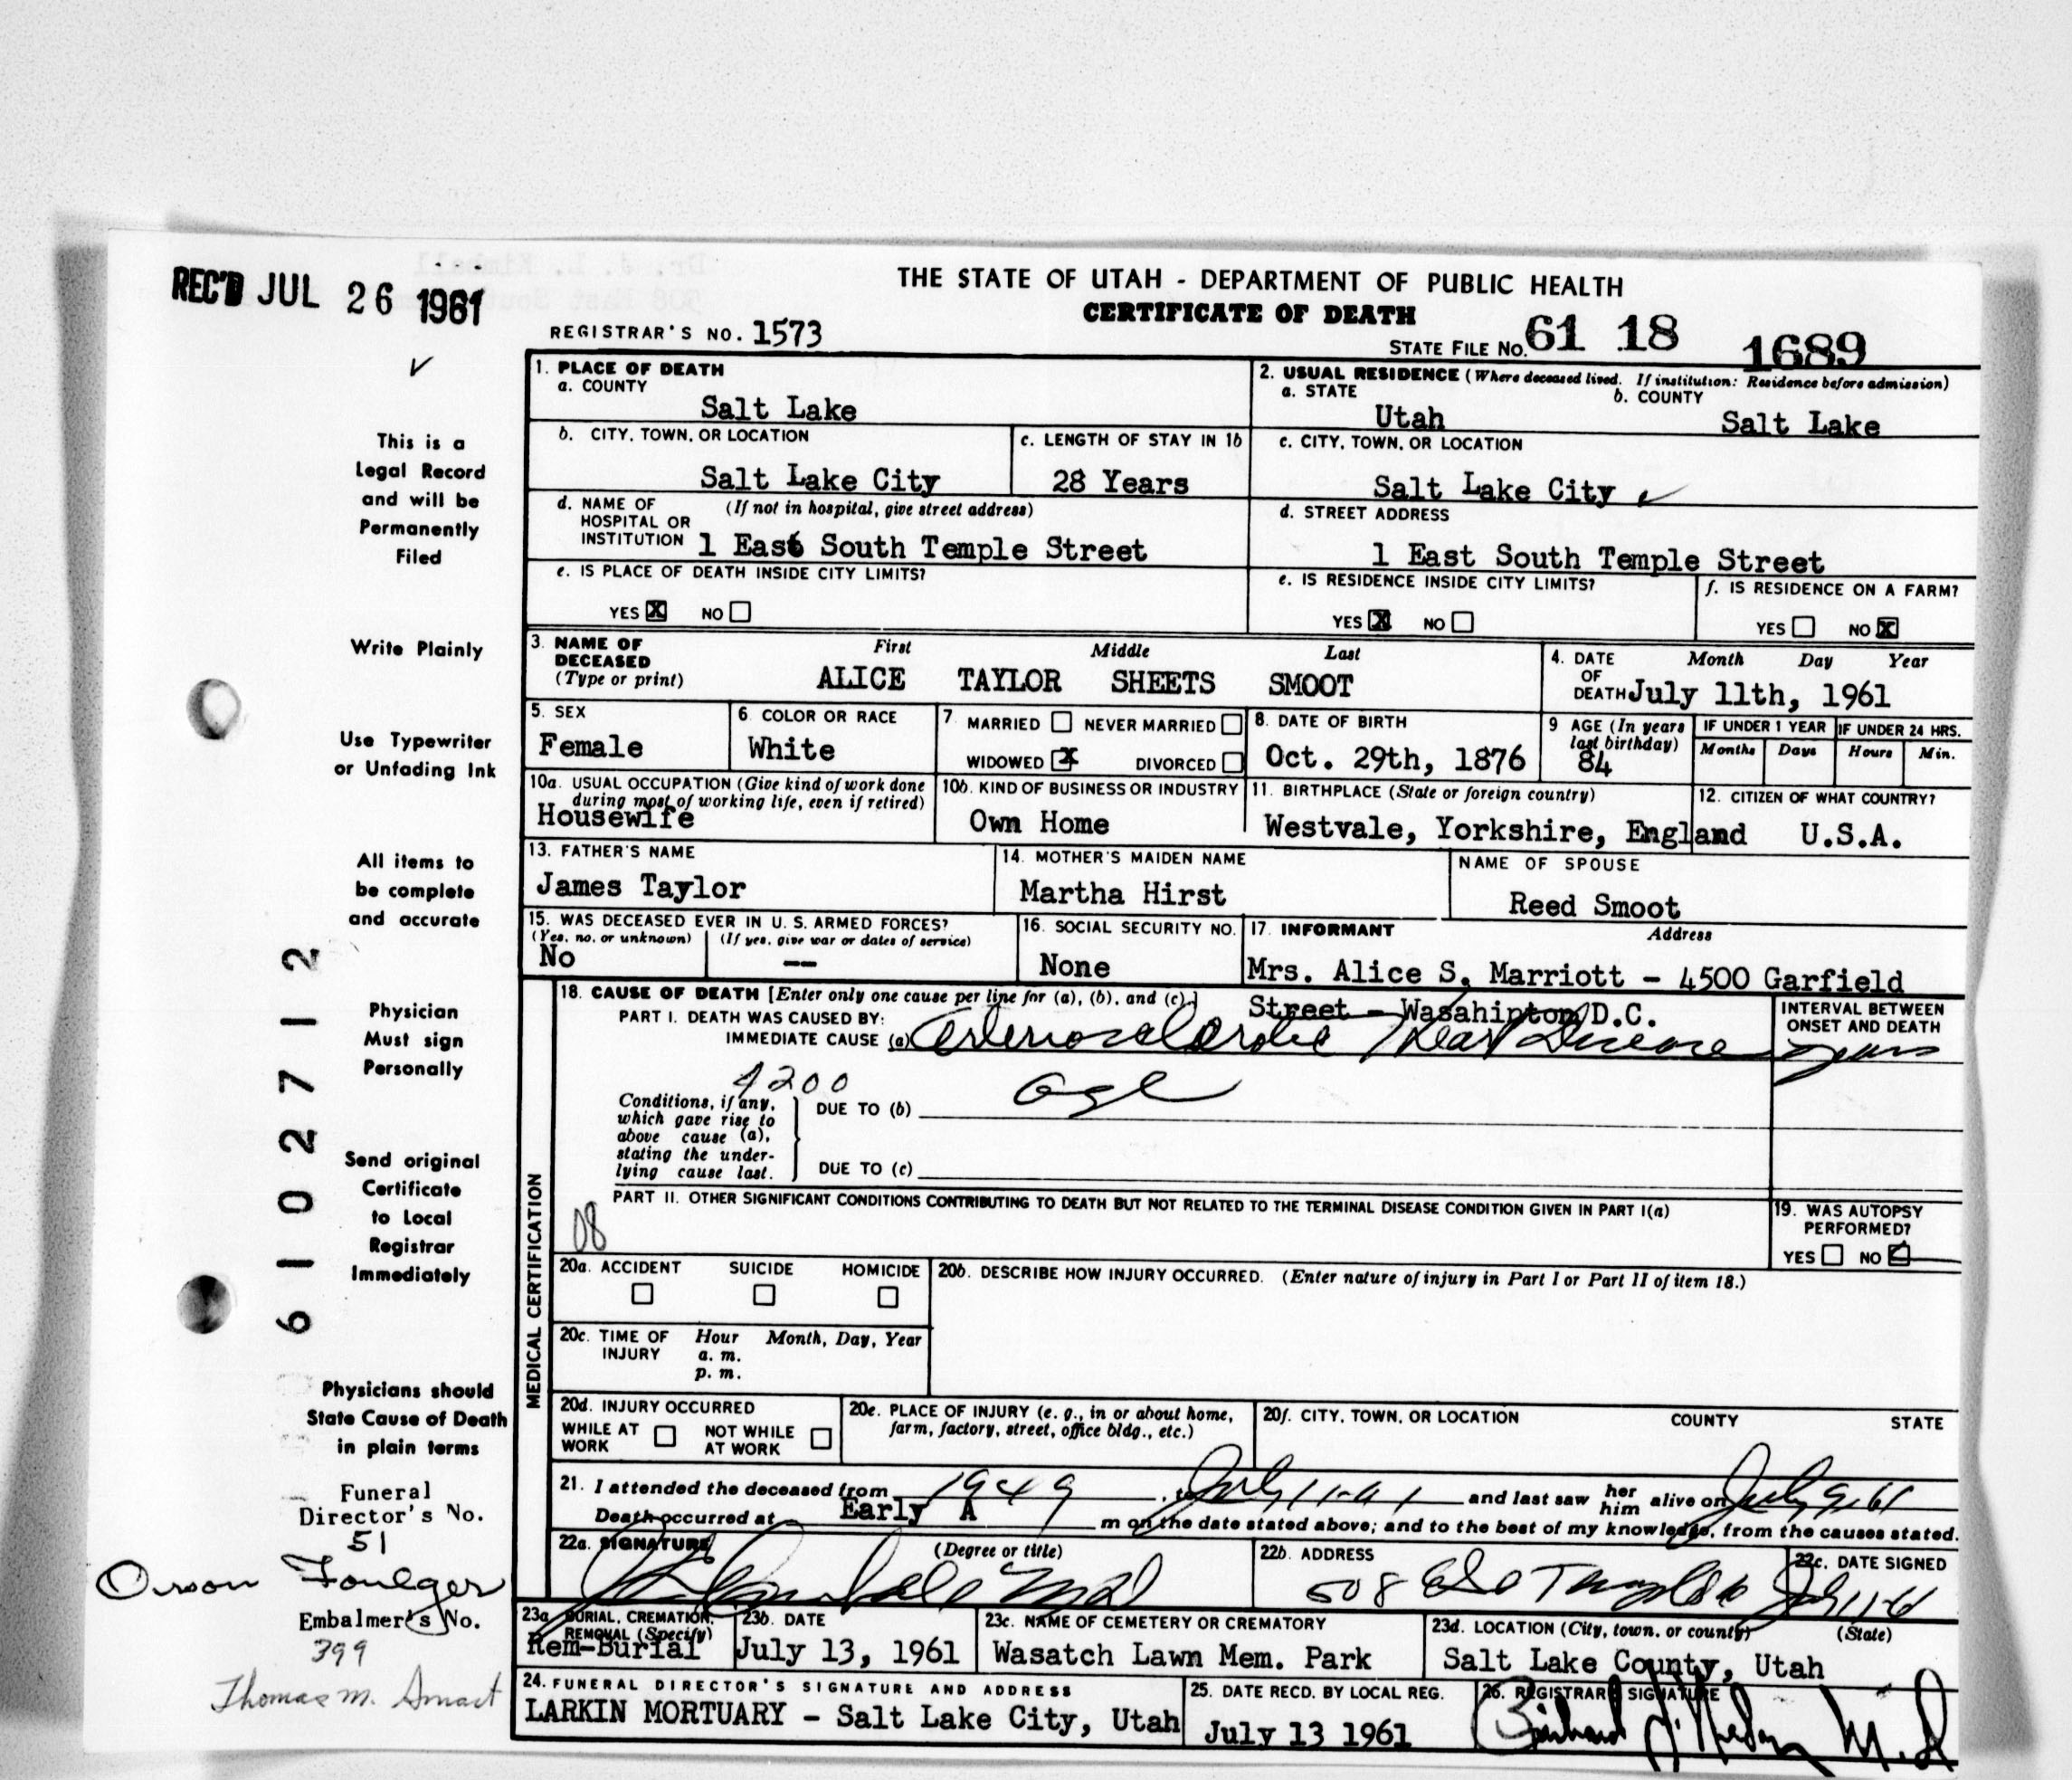 REC'D JUL 26 1961
THE STATE OF UTAH - DEPARTMENT OF PUBLIC HEALTH
CERTIFICATE OF DEATH
REGISTRAR'S NO. 1573
STATE FILE NO. 61 18 1689
This is a
Legal Record
and will be
Permanently
Filed
Write Plainly
Use Typewriter
or Unfading Ink
All items to
be complete
and accurate
Physician
Must sign
Personally
Send original
Certificate
to Local
Registrar
Immediately
Physicians should
State Cause of Death
in plain terms
6102712
Funeral
Director's No.
51
Orson Foulger
Embalmer's No.
399
Thomas M. Smart
1. PLACE OF DEATH
a. COUNTY
Salt Lake
2. USUAL RESIDENCE (Where deceased lived. If institution: Residence before admission)
a. STATE b. COUNTY
Utah Salt Lake
b. CITY, TOWN, OR LOCATION
Salt Lake City
c. LENGTH OF STAY IN 1b
28 Years
c. CITY, TOWN, OR LOCATION
Salt Lake City
d. NAME OF (If not in hospital, give street address)
HOSPITAL OR
INSTITUTION 1 East South Temple Street
d. STREET ADDRESS
1 East South Temple Street
e. IS PLACE OF DEATH INSIDE CITY LIMITS?
YES X NO
e. IS RESIDENCE INSIDE CITY LIMITS?
YES X NO
f. IS RESIDENCE ON A FARM?
YES NO X
3. NAME OF First Middle Last
DECEASED
(Type or print) ALICE TAYLOR SHEETS SMOOT
4. DATE Month Day Year
OF
DEATH July 11th, 1961
5. SEX
Female
6. COLOR OR RACE
White
7. MARRIED NEVER MARRIED
WIDOWED X DIVORCED
8. DATE OF BIRTH
Oct. 29th, 1876
9 AGE (In years
last birthday)
84
IF UNDER 1 YEAR IF UNDER 24 HRS.
Months Days Hours Min.
10a. USUAL OCCUPATION (Give kind of work done
during most of working life, even if retired)
Housewife
10b. KIND OF BUSINESS OR INDUSTRY
Own Home
11. BIRTHPLACE (State or foreign country)
Westvale, Yorkshire, England
12. CITIZEN OF WHAT COUNTRY?
U.S.A.
13. FATHER'S NAME
James Taylor
14. MOTHER'S MAIDEN NAME
Martha Hirst
NAME OF SPOUSE
Reed Smoot
15. WAS DECEASED EVER IN U. S. ARMED FORCES?
(Yes, no, or unknown) (If yes, give war or dates of service)
No --
16. SOCIAL SECURITY NO.
None
17. INFORMANT Address
Mrs. Alice S. Marriott - 4500 Garfield
Street - Wasahipton D.C.
MEDICAL CERTIFICATION
18. CAUSE OF DEATH [Enter only one cause per line for (a), (b), and (c).]
PART I. DEATH WAS CAUSED BY:
IMMEDIATE CAUSE (a) Arteriosclerotic Heart Disease
INTERVAL BETWEEN
ONSET AND DEATH
years
4200
Conditions, if any,
which gave rise to
above cause (a),
stating the under-
lying cause last.
DUE TO (b) age
DUE TO (c)
PART II. OTHER SIGNIFICANT CONDITIONS CONTRIBUTING TO DEATH BUT NOT RELATED TO THE TERMINAL DISEASE CONDITION GIVEN IN PART I(a)
08
19. WAS AUTOPSY
PERFORMED?
YES NO
20a. ACCIDENT SUICIDE HOMICIDE
20b. DESCRIBE HOW INJURY OCCURRED. (Enter nature of injury in Part I or Part II of item 18.)
20c. TIME OF Hour Month, Day, Year
INJURY a. m.
p. m.
20d. INJURY OCCURRED
WHILE AT NOT WHILE
WORK AT WORK
20e. PLACE OF INJURY (e. g., in or about home,
farm, factory, street, office bldg., etc.)
20f. CITY, TOWN, OR LOCATION COUNTY STATE
21. I attended the deceased from 1949, to July 11-61 and last saw her him alive on July 9-61
Death occurred at Early A m on the date stated above; and to the best of my knowledge, from the causes stated.
22a. SIGNATURE (Degree or title)
22b. ADDRESS
508
22c. DATE SIGNED
July 11-61
23a. BURIAL, CREMATION,
REMOVAL (Specify)
Rem-Burial
23b. DATE
July 13, 1961
23c. NAME OF CEMETERY OR CREMATORY
Wasatch Lawn Mem. Park
23d. LOCATION (City, town, or county) (State)
Salt Lake County, Utah
24. FUNERAL DIRECTOR'S SIGNATURE AND ADDRESS
LARKIN MORTUARY - Salt Lake City, Utah
25. DATE RECD. BY LOCAL REG.
July 13 1961
26. REGISTRAR'S SIGNATURE